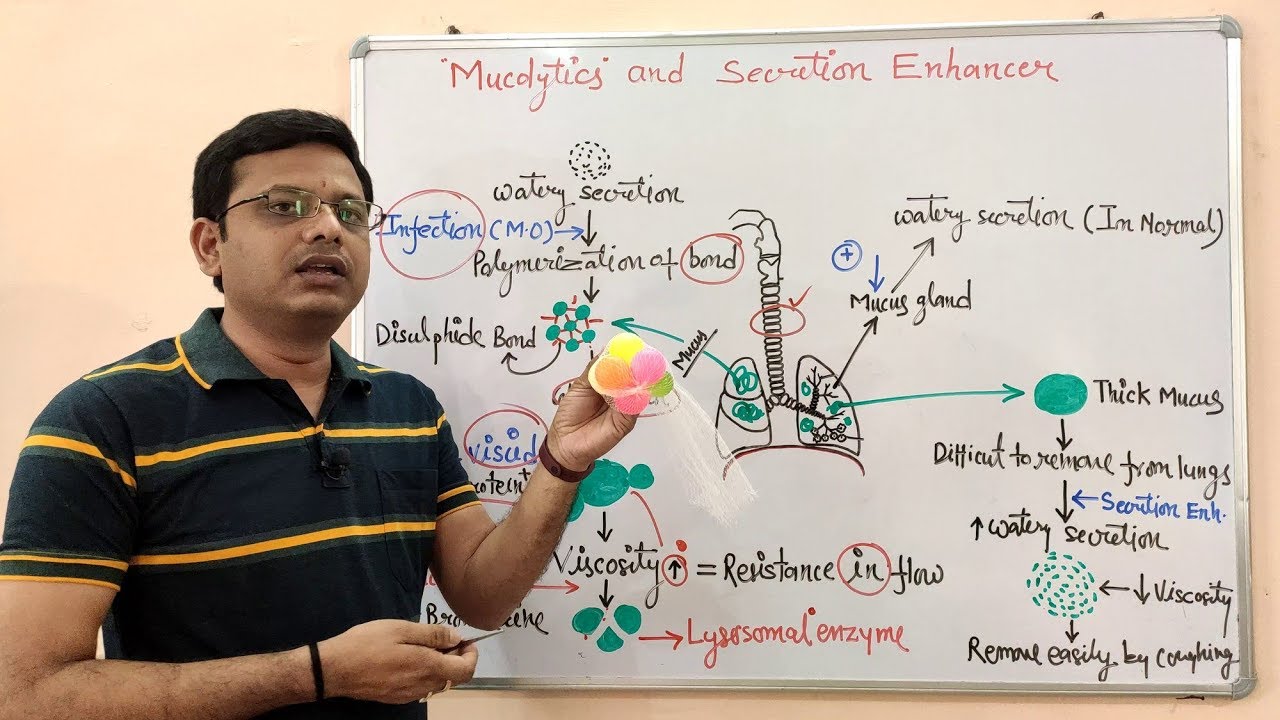 "Mucolytics" and Secretion Enhancer
watery secretion
Infection (M.O)
Polymerization of bond
Disulphide Bond
Mucus
viscid
Viscosity ↑ = Resistance in flow
Lysosomal enzyme
watery secretion (In Normal)
+
Mucus gland
Thick Mucus
Difficut to remove from lungs
Secrtion Enh.
↑ watery secretion
↓ Viscosity
Remove easily by coughing